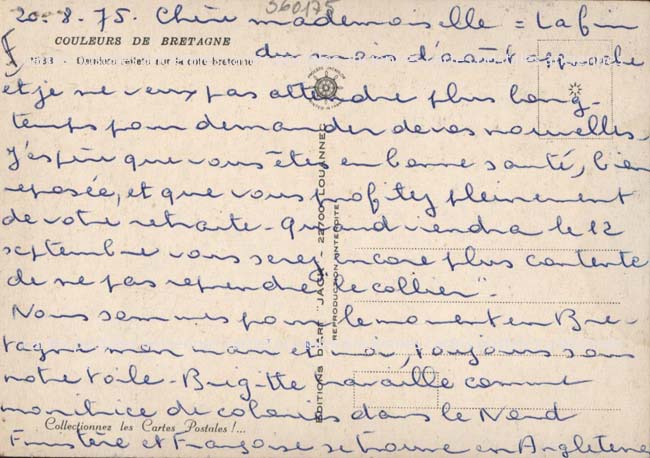 560175
20.8.75. Chère mademoiselle = La fin
COULEURS DE BRETAGNE
du mois d'août approche
Derniers reflets sur la côte bretonne
et je ne veux pas attendre plus long-
temps pour demander de vos nouvelles.
J'espère que vous êtes en bonne santé, bien
reposée, et que vous profitez pleinement
de votre retraite. Quand viendra le 12
septembre vous serez encore plus contente
de ne pas reprendre "le collier".
Nous sommes pour le moment en Bre-
tagne mon mari et moi, toujours sous
notre toile. Brigitte travaille comme
monitrice de colonies dans le Nord
Collectionnez les Cartes Postales !...
Finistère et Françoise se trouve en Angleterre
EDITIONS D'ART "JACK" 22700 LOUANNEC
REPRODUCTION INTERDITE